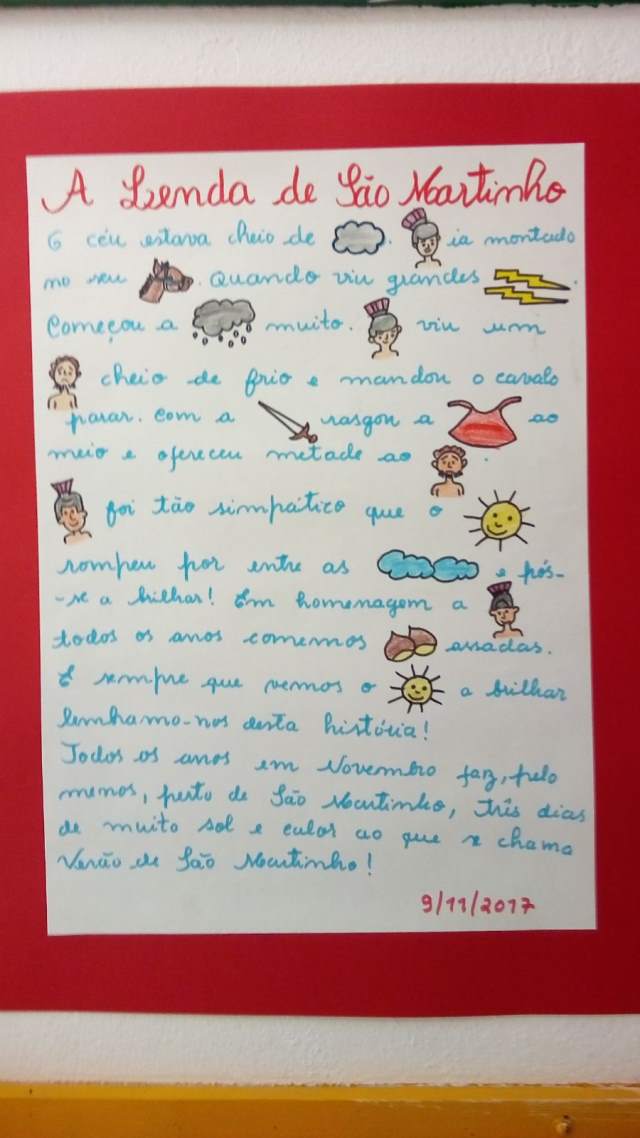 A Lenda de São Martinho
O céu estava cheio de . ia montado
no seu . Quando viu grandes .
Começou a muito. viu um
cheio de frio e mandou o cavalo
parar. Com a rasgou a ao
meio e ofereceu metade ao .
foi tão simpático que o
rompeu por entre as e pôs-
-se a brilhar! Em homenagem a
todos os anos comemos assadas.
E sempre que vemos o a brilhar
lembramo-nos desta história!
Todos os anos em Novembro faz, pelo
menos, perto de São Martinho, três dias
de muito sol e calor ao que se chama
Verão de São Martinho!
9/11/2017